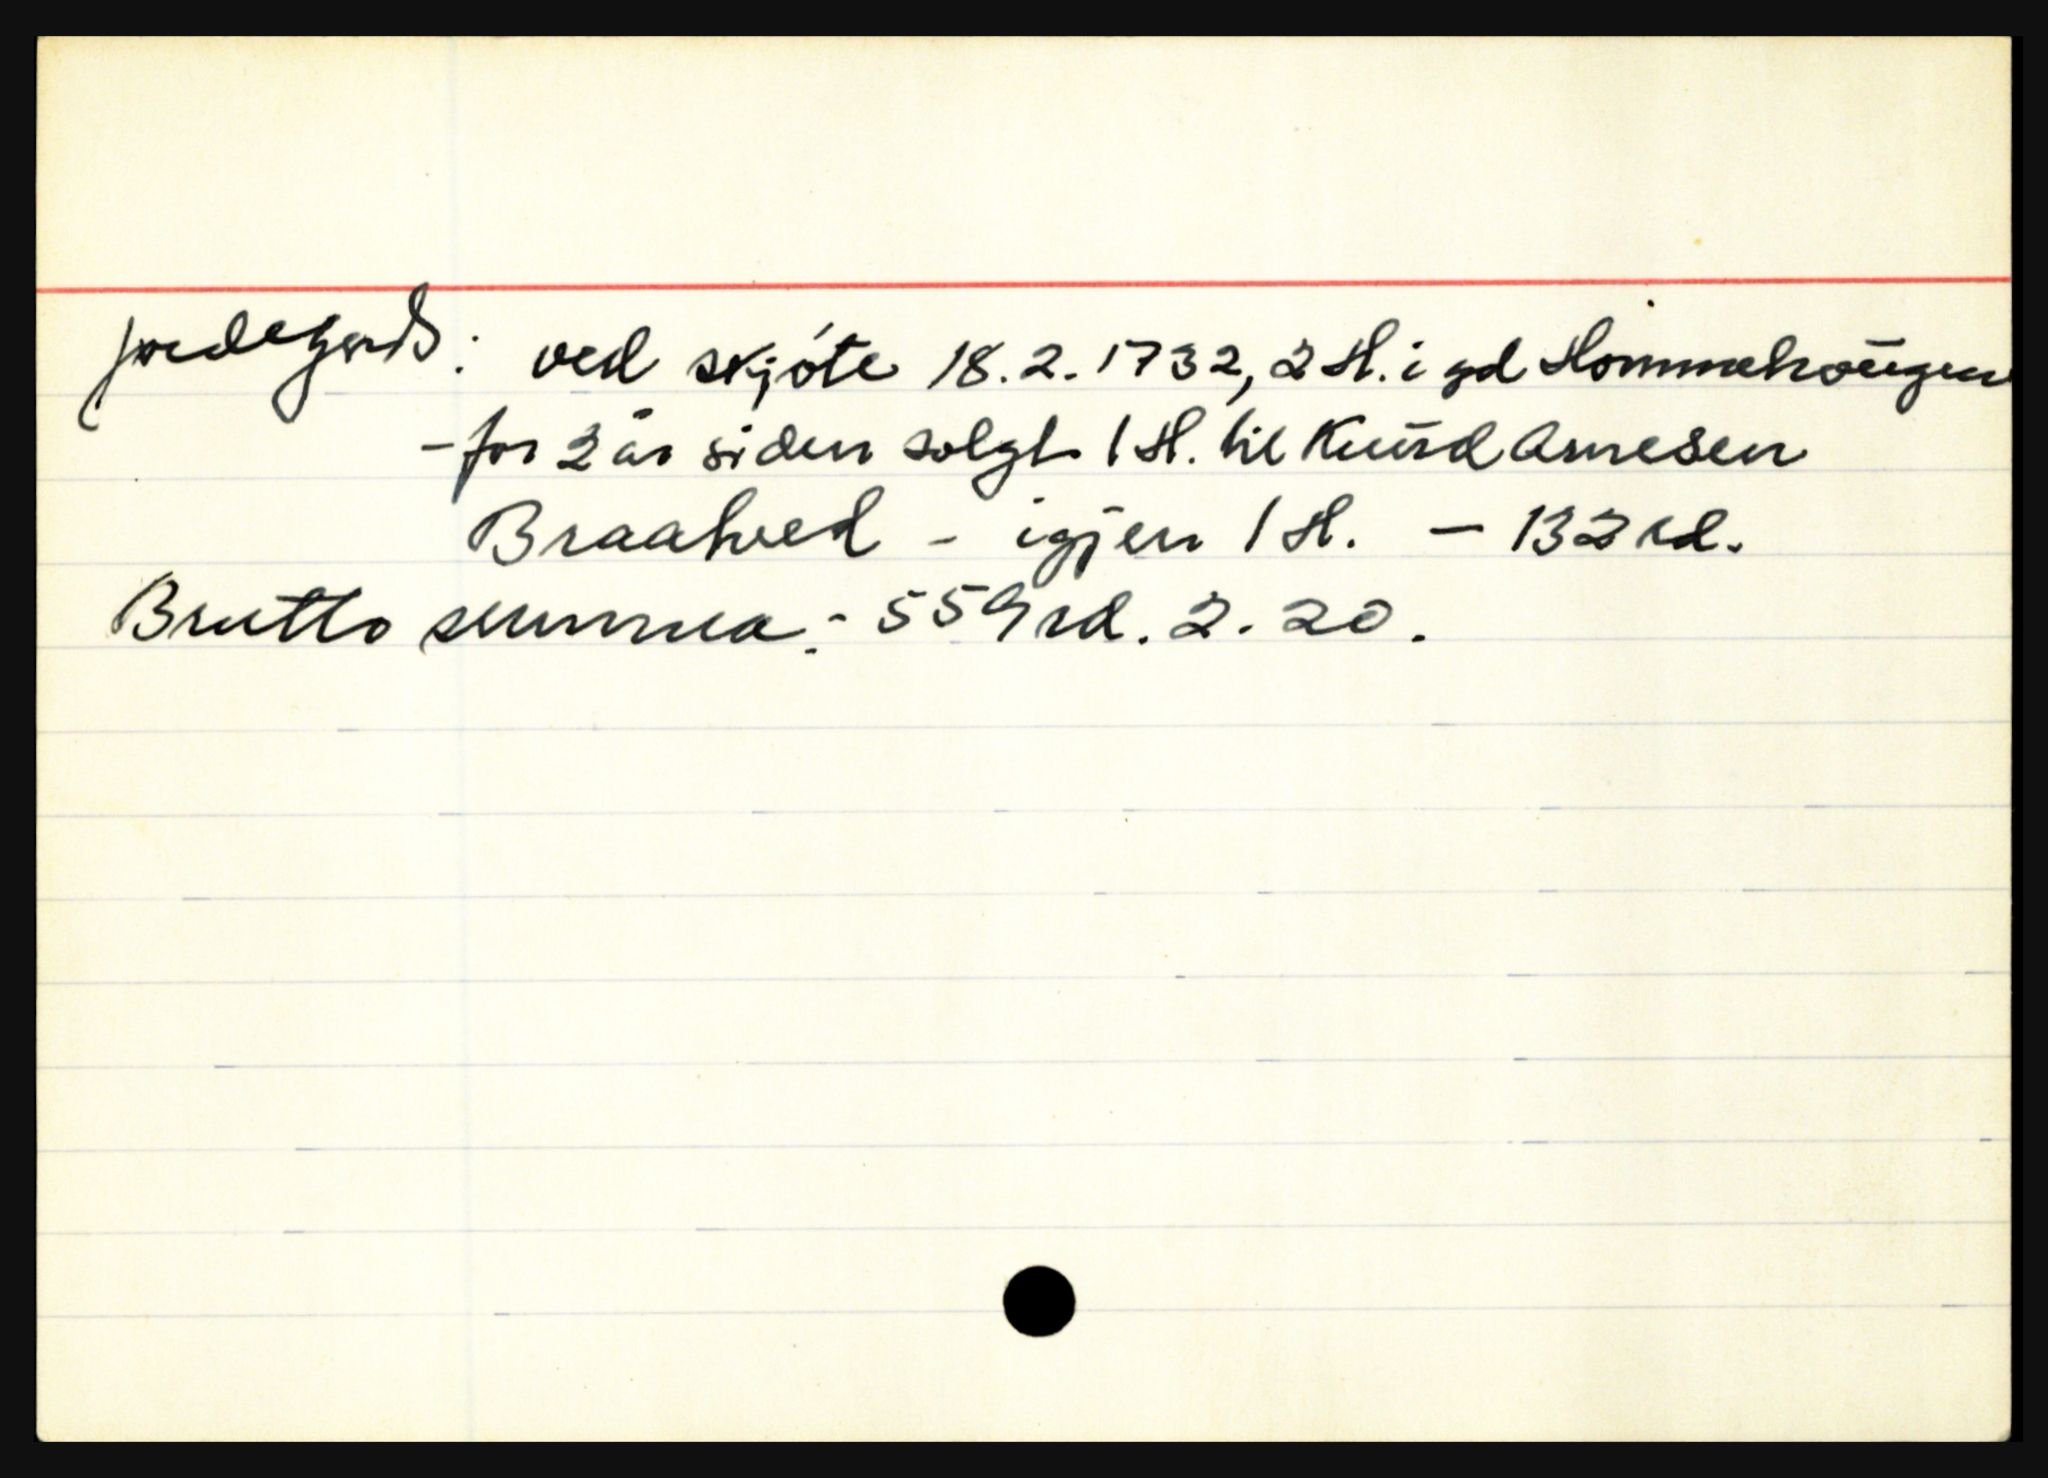 jordegods: ved skjöte 18.2.1732, 2 H. i gd Hommehougen
- for 2 år siden solgt 1 H. til Knud Arnesen
Braatved - igjen 1 H. - 132 rd.
Brutto summa: - 559 rd. 2. 20.